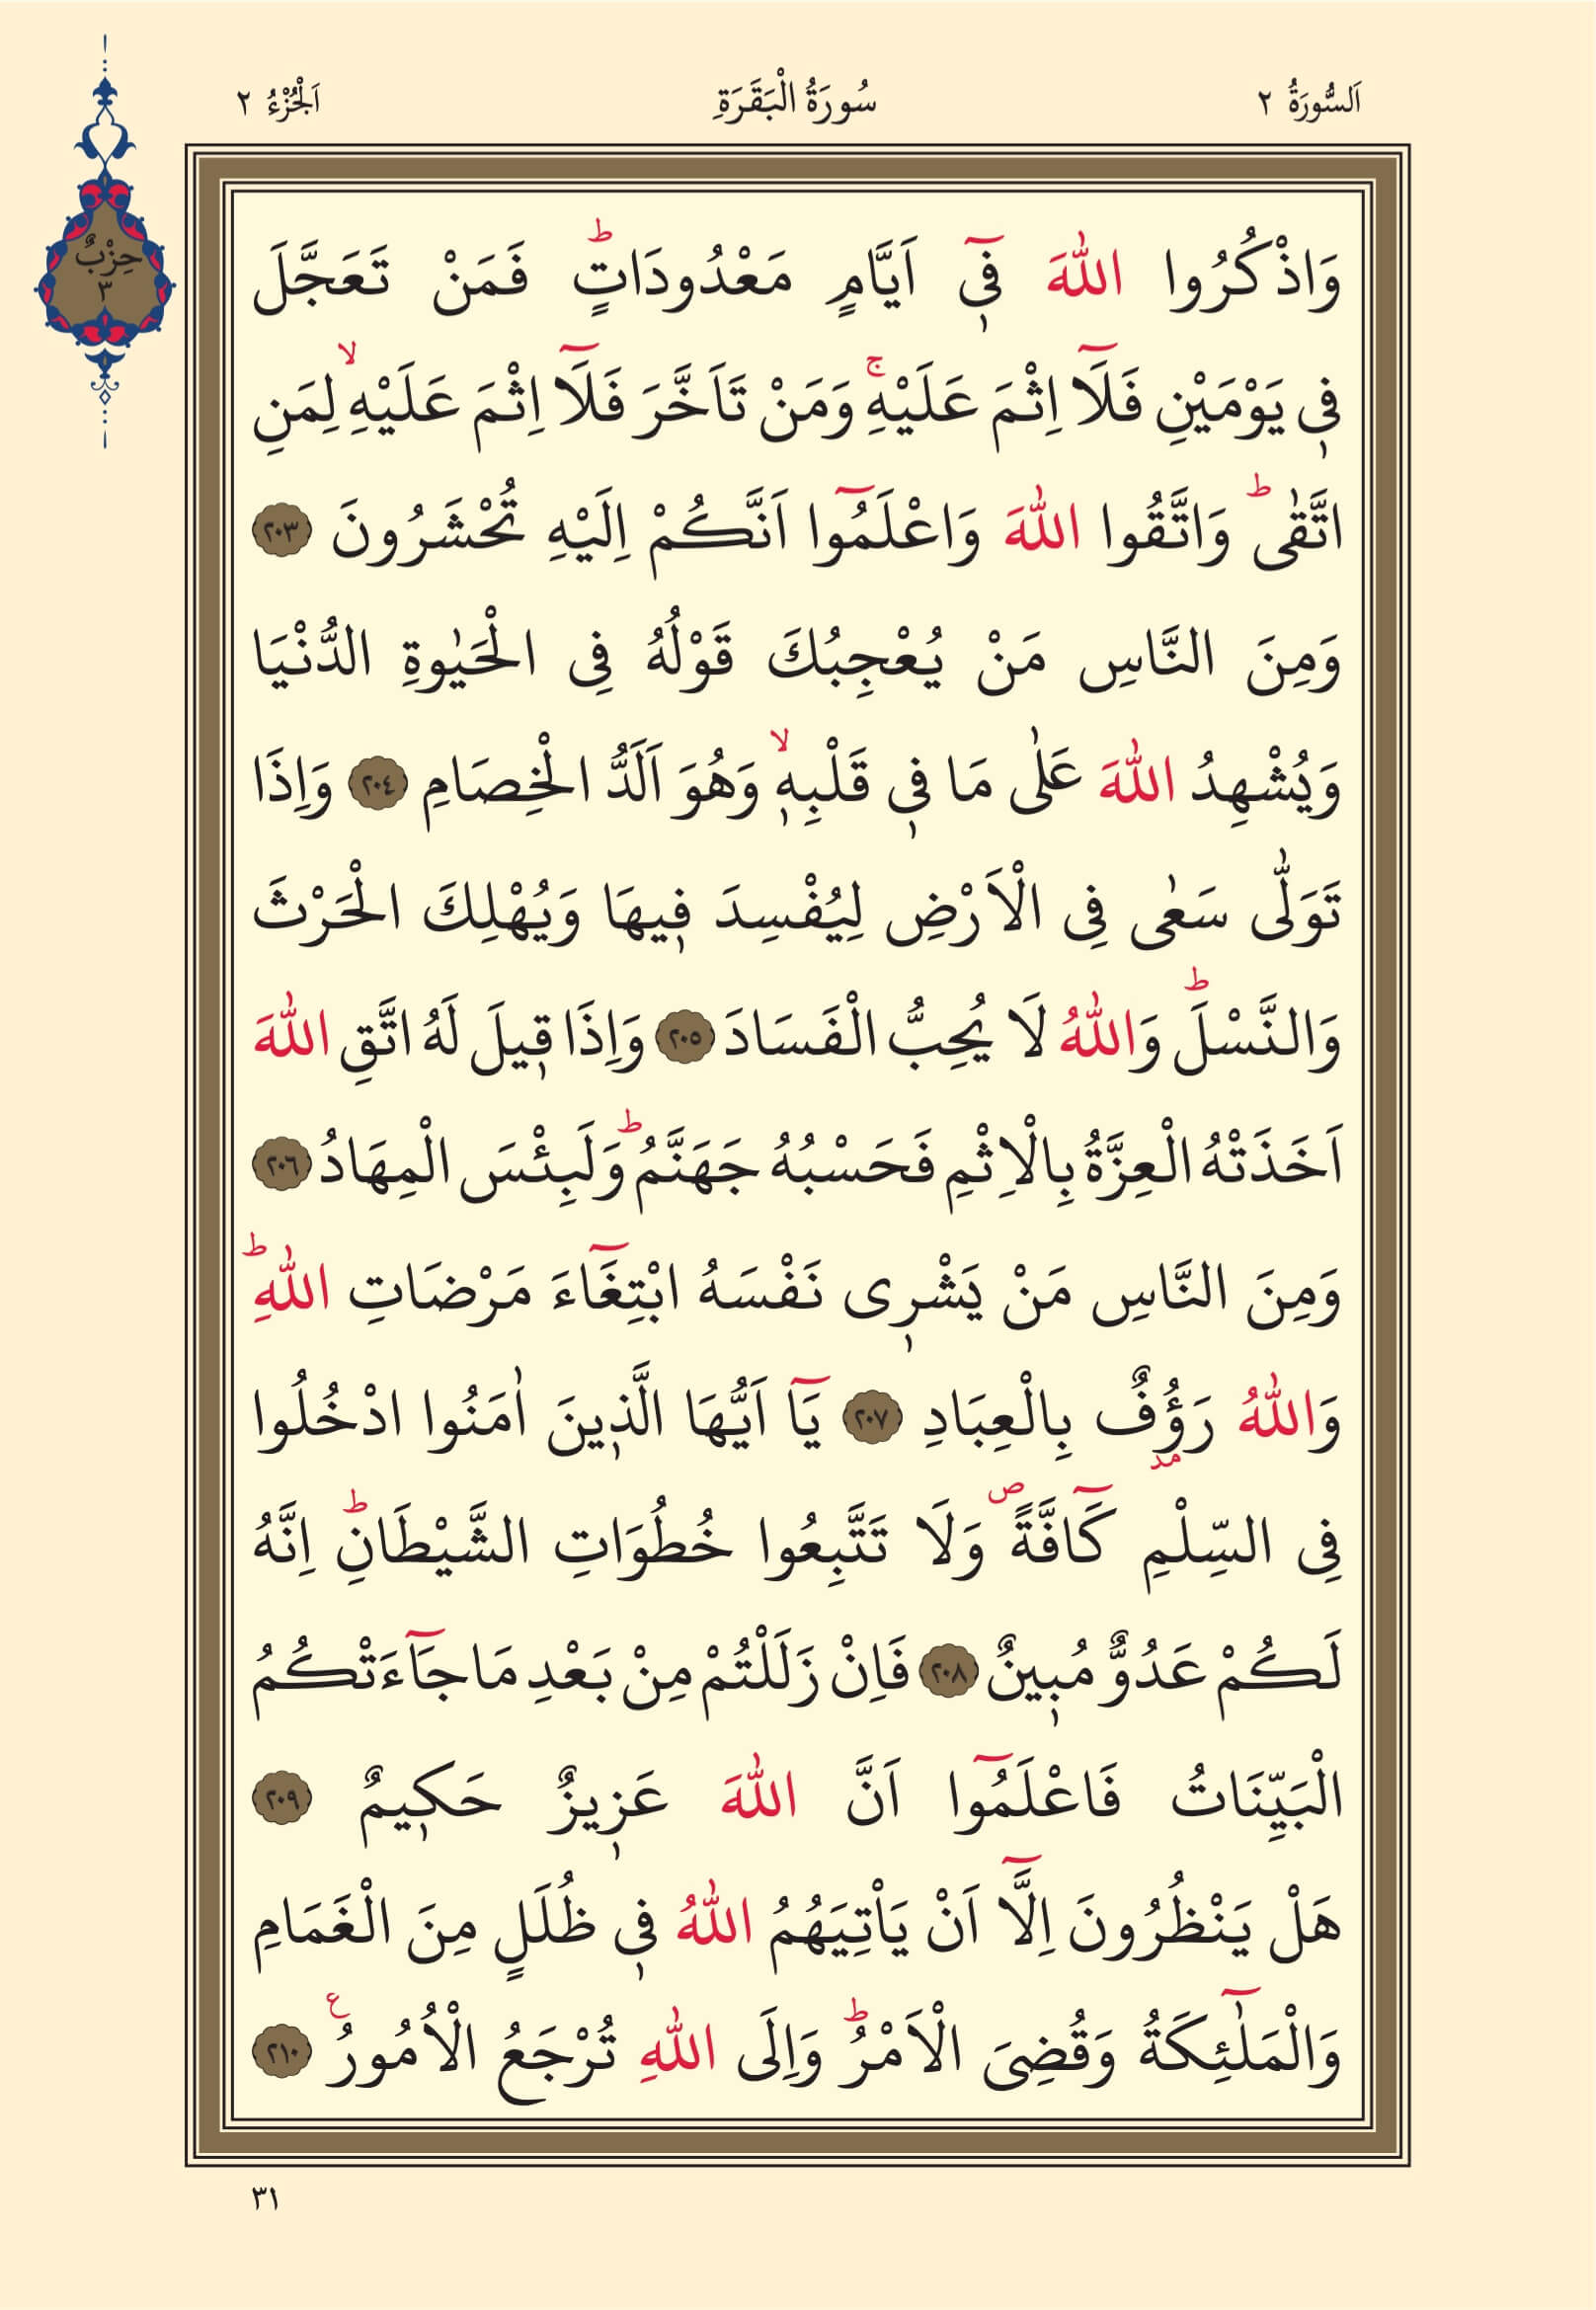 اَلسُّورَةُ ٢ سُورَةُ الْبَقَرَةِ اَلْجُزْءُ ٢
حِزْبٌ
٣
وَاذْكُرُوا اللّٰهَ ف۪ٓي اَيَّامٍ مَعْدُودَاتٍۜ فَمَنْ تَعَجَّلَ
ف۪ي يَوْمَيْنِ فَلَٓا اِثْمَ عَلَيْهِۚ وَمَنْ تَاَخَّرَ فَلَٓا اِثْمَ عَلَيْهِۙ لِمَنِ
اتَّقٰىۜ وَاتَّقُوا اللّٰهَ وَاعْلَمُٓوا اَنَّكُمْ اِلَيْهِ تُحْشَرُونَ ﴿٢٠٣﴾
وَمِنَ النَّاسِ مَنْ يُعْجِبُكَ قَوْلُهُ فِي الْحَيٰوةِ الدُّنْيَا
وَيُشْهِدُ اللّٰهَ عَلٰى مَا ف۪ي قَلْبِه۪ۙ وَهُوَ اَلَدُّ الْخِصَامِ ﴿٢٠٤﴾ وَاِذَا
تَوَلّٰى سَعٰى فِي الْاَرْضِ لِيُفْسِدَ ف۪يهَا وَيُهْلِكَ الْحَرْثَ
وَالنَّسْلَۜ وَاللّٰهُ لَا يُحِبُّ الْفَسَادَ ﴿٢٠٥﴾ وَاِذَا ق۪يلَ لَهُ اتَّقِ اللّٰهَ
اَخَذَتْهُ الْعِزَّةُ بِالْاِثْمِ فَحَسْبُهُ جَهَنَّمُۜ وَلَبِئْسَ الْمِهَادُ ﴿٢٠٦﴾
وَمِنَ النَّاسِ مَنْ يَشْر۪ي نَفْسَهُ ابْتِغَٓاءَ مَرْضَاتِ اللّٰهِۜ
وَاللّٰهُ رَؤُ۫فٌ بِالْعِبَادِ ﴿٢٠٧﴾ يَٓا اَيُّهَا الَّذ۪ينَ اٰمَنُوا ادْخُلُوا
فِي السِّلْمِ كَٓافَّةًۖ وَلَا تَتَّبِعُوا خُطُوَاتِ الشَّيْطَانِۜ اِنَّهُ
لَكُمْ عَدُوٌّ مُب۪ينٌ ﴿٢٠٨﴾ فَاِنْ زَلَلْتُمْ مِنْ بَعْدِ مَا جَٓاءَتْكُمُ
الْبَيِّنَاتُ فَاعْلَمُٓوا اَنَّ اللّٰهَ عَز۪يزٌ حَك۪يمٌ ﴿٢٠٩﴾
هَلْ يَنْظُرُونَ اِلَّٓا اَنْ يَاْتِيَهُمُ اللّٰهُ ف۪ي ظُلَلٍ مِنَ الْغَمَامِ
وَالْمَلٰٓئِكَةُ وَقُضِيَ الْاَمْرُۜ وَاِلَى اللّٰهِ تُرْجَعُ الْاُمُورُ۟ ﴿٢١٠﴾
٣١